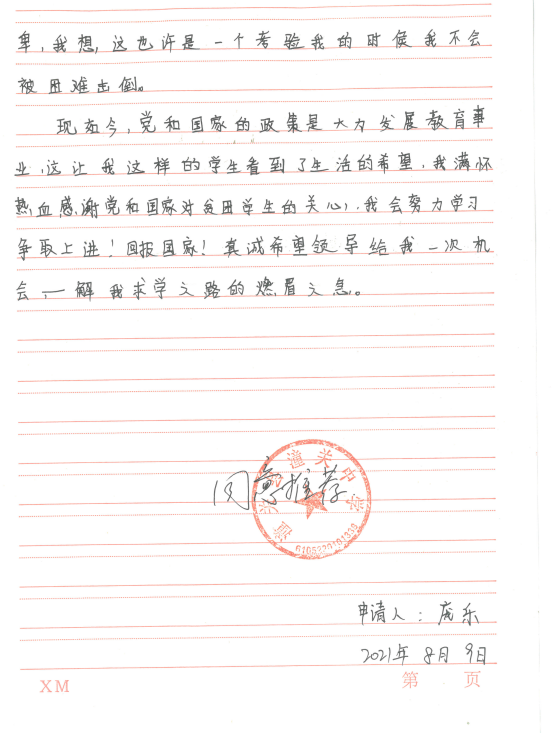 卑,我想,这也许是一个考验我的时候我不会
被困难击倒。
现如今,党和国家的政策是大力发展教育事
业,这让我这样的学生看到了生活的希望,我满怀
热血感谢党和国家对贫困学生的关心,我会努力学习
争取上进!回报国家!真诚希望领导给我一次机
会,一解我求学之路的燃眉之急。
潼关县潼关中学
同意推荐
申请人:庞乐
2021年8月9日
XM
第 页